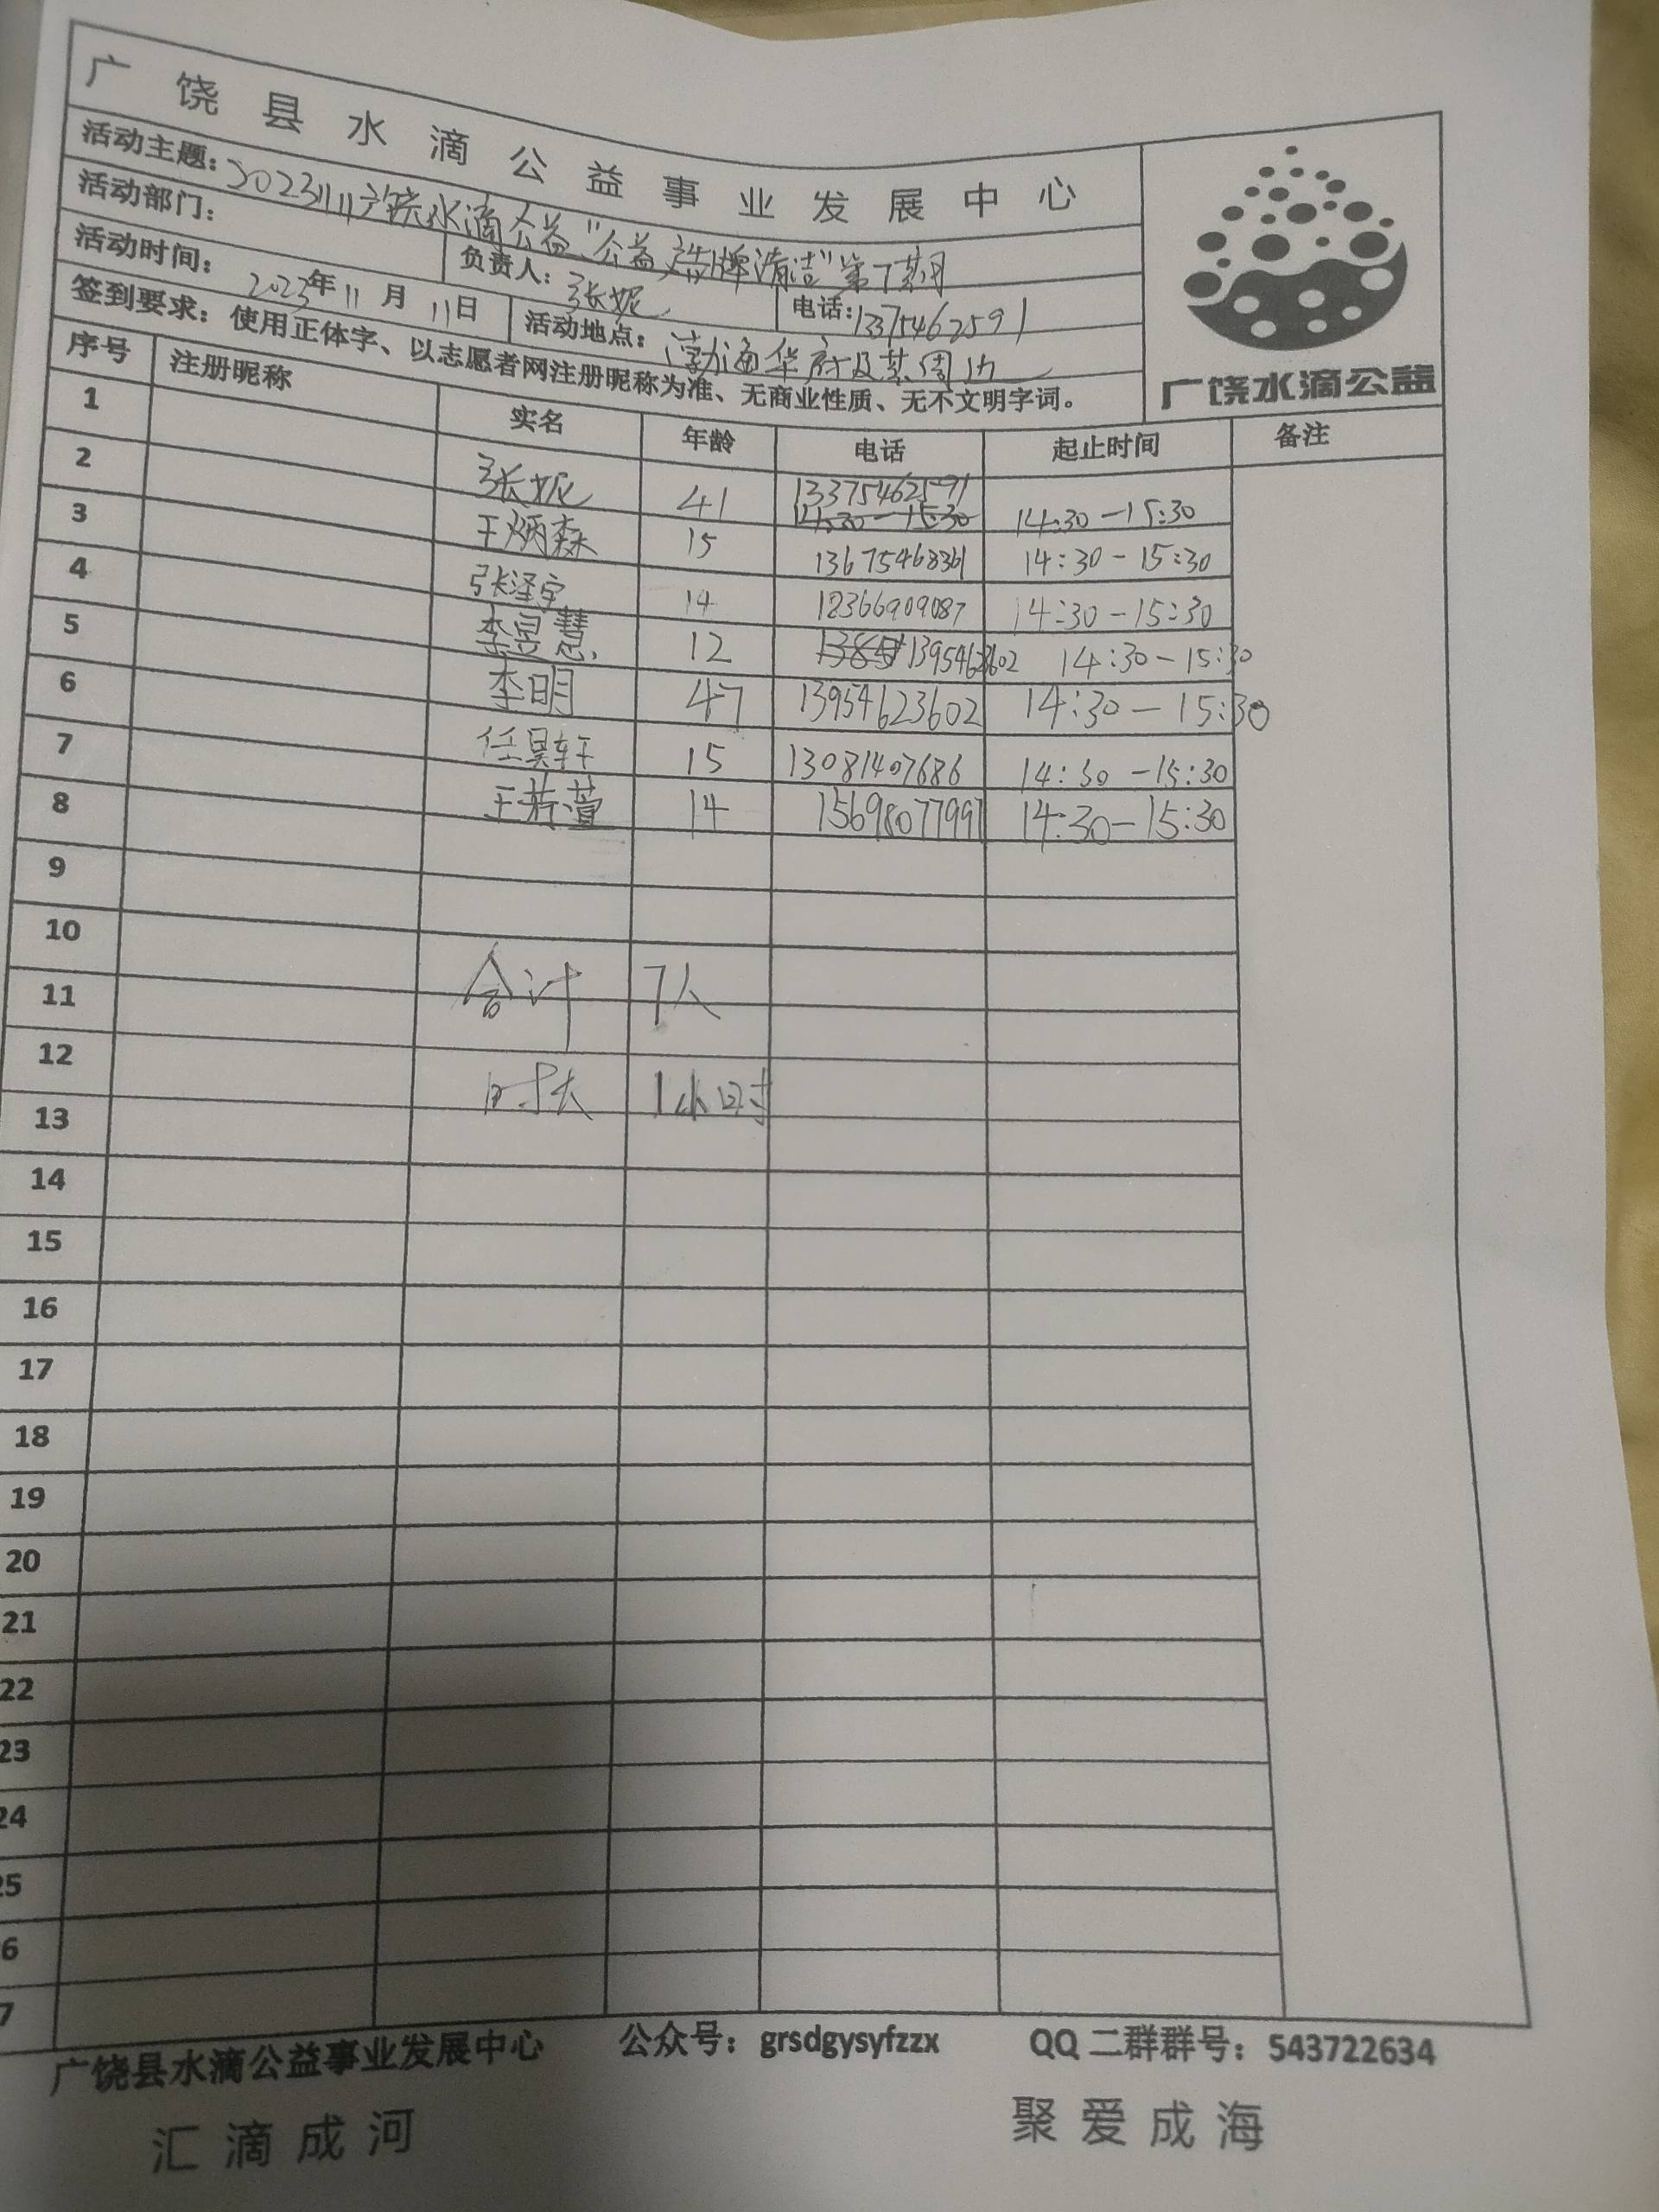 广饶县水滴公益事业发展中心
活动主题：20231111广饶水滴公益"公益站牌清洁"第丁期
活动部门： 负责人：张妮 电话：13375462591
活动时间：2023年11月11日 活动地点：渤海华府及其周边
签到要求：使用正体字、以志愿者网注册昵称为准、无商业性质、无不文明字词。
广饶水滴公益
序号 注册昵称 实名 年龄 电话 起止时间 备注
1 张妮 41 13375462591 14:30-15:30 14:30-15:30
2 王炳森 15 13675468361 14:30-15:30
3 张泽宇 14 12366909087 14:30-15:30
4 李昱慧 12 13954623602 14:30-15:30
5 李明 47 13954623602 14:30-15:30
6 任昊轩 15 13081407686 14:30-15:30
7 王若萱 14 15698077997 14:30-15:30
8
9
10 合计 7人
11
12 时长 1小时
13
14
15
16
17
18
19
20
21
22
23
24
25
6
7
广饶县水滴公益事业发展中心 公众号：grsdgysyfzzx QQ二群群号：543722634
汇滴成河 聚爱成海